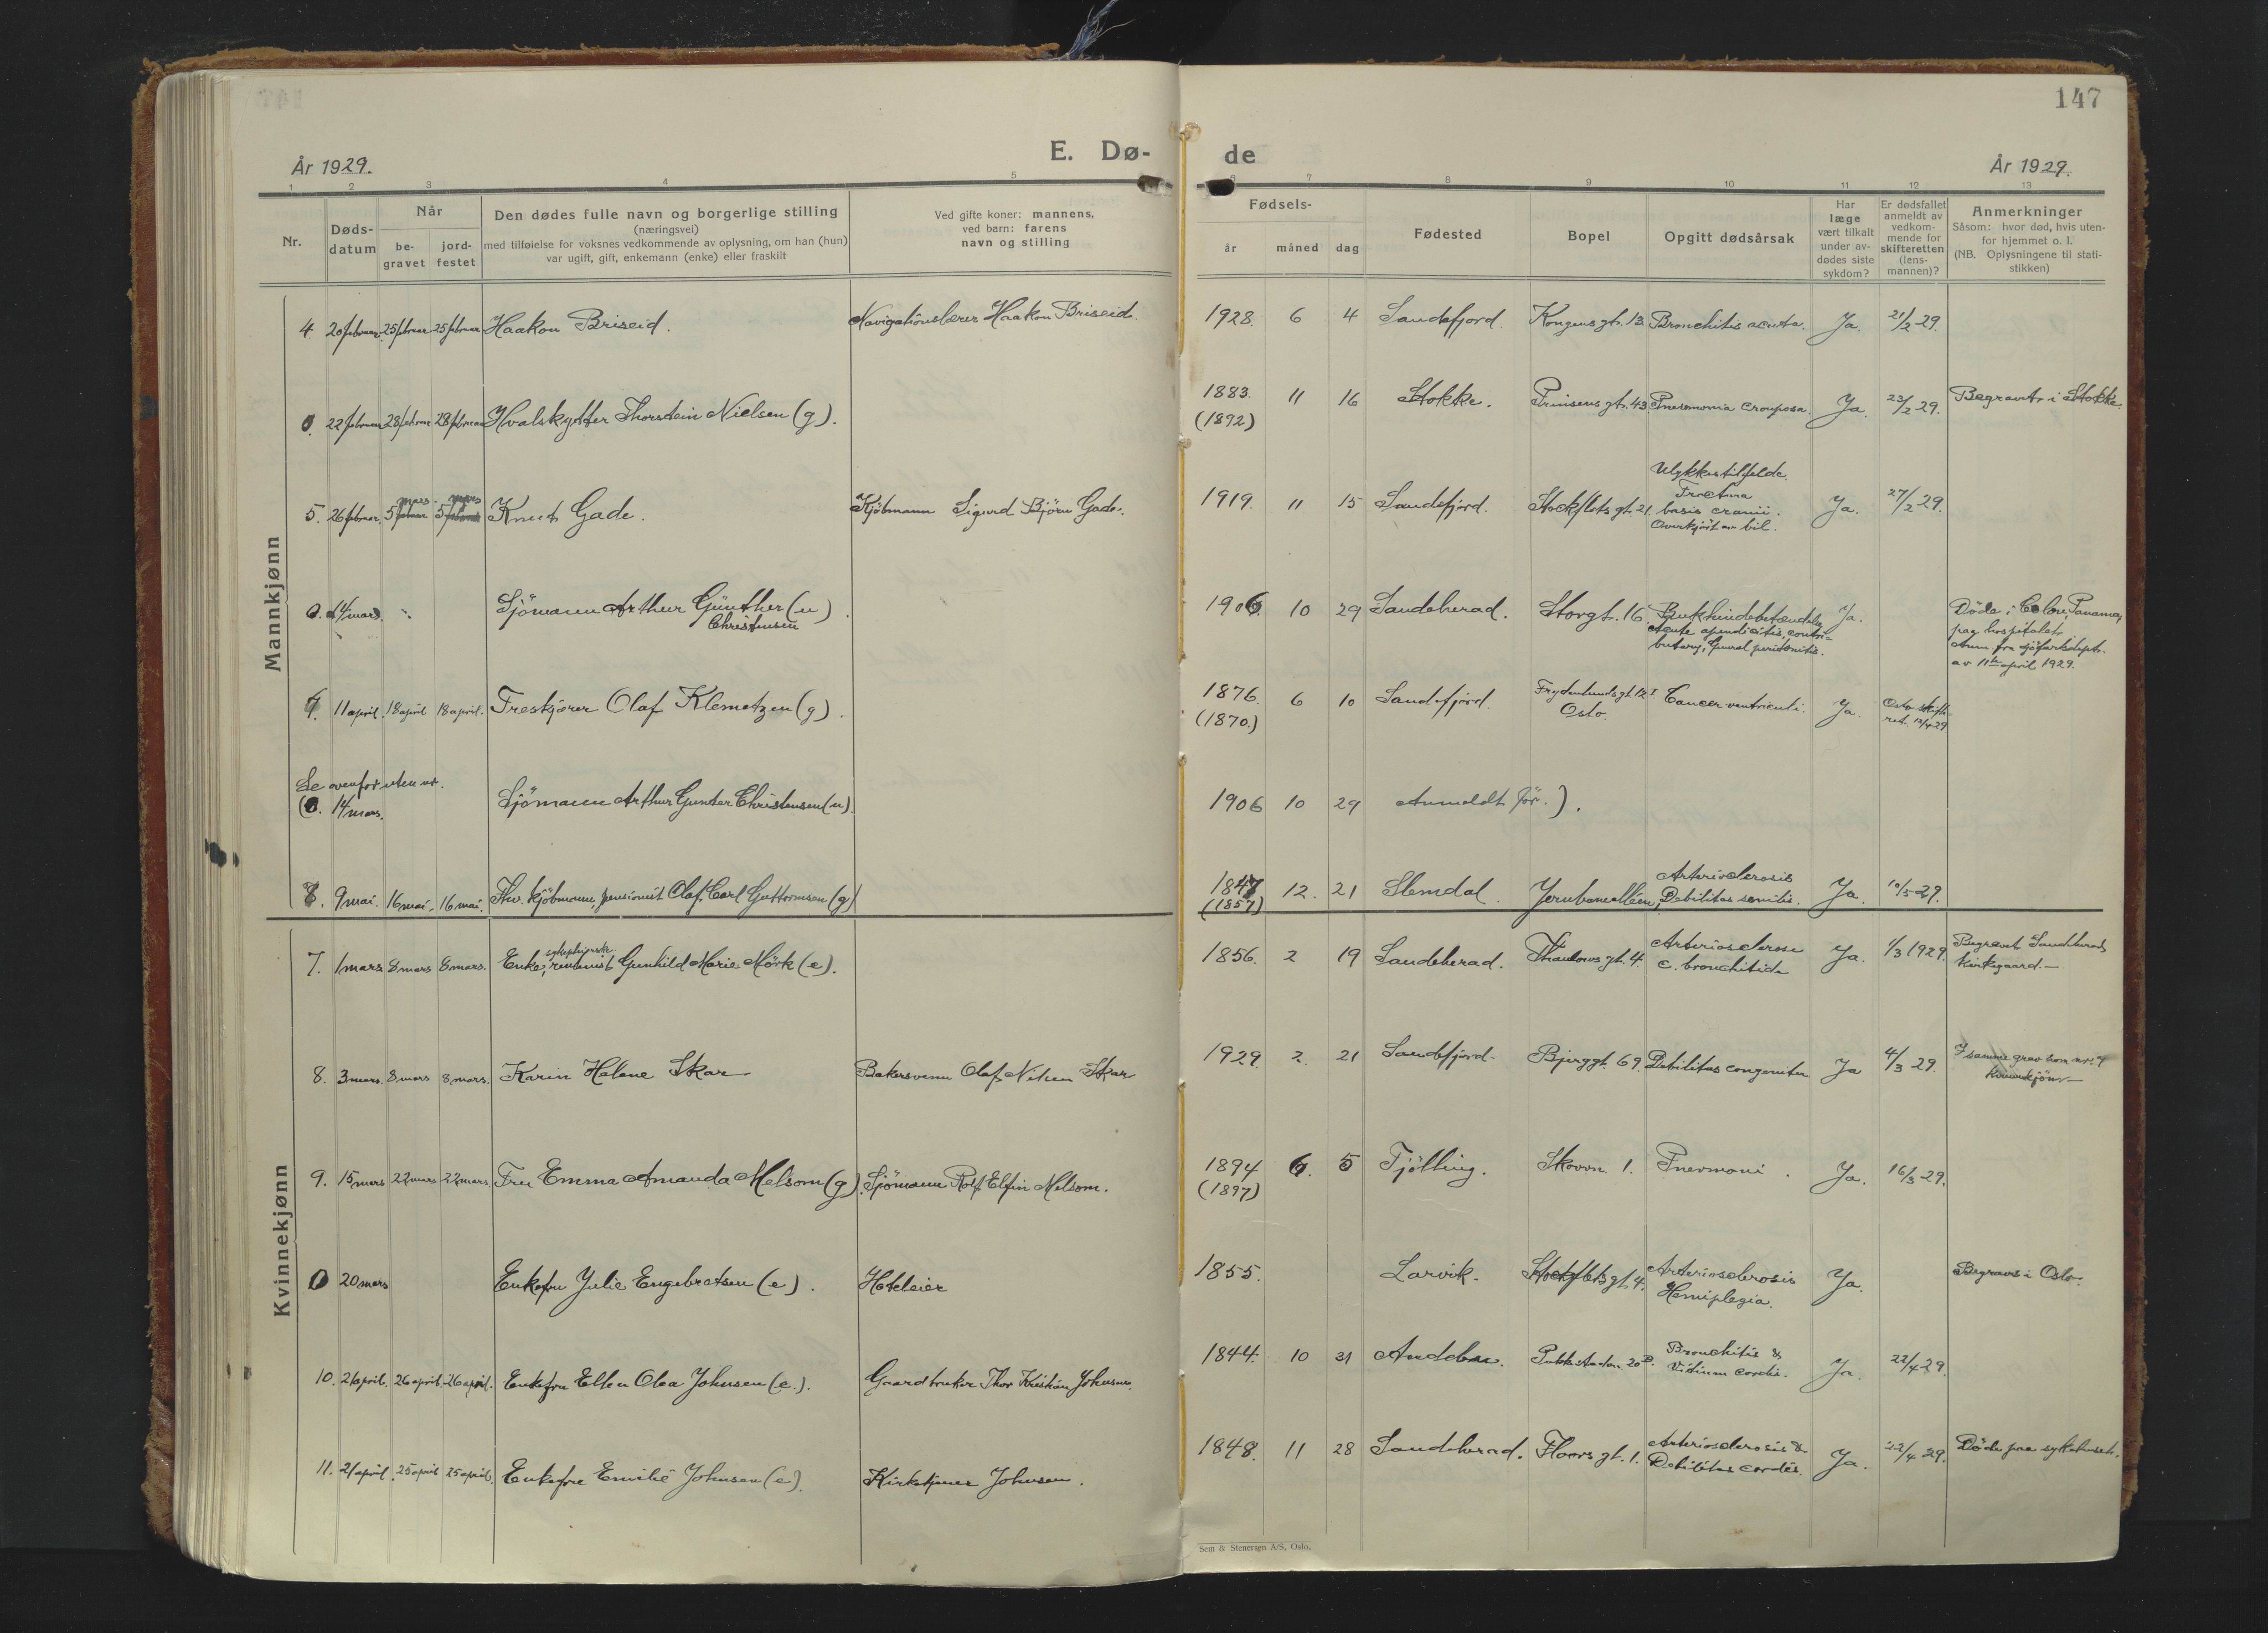 147
E. Dø- de
År 1929.
År 1929.
1 2 3 4 5 6 7 8 9 10 11 12 13
Nr.
Døds-
datum
Når
be-
gravet
jord-
festet
Den dødes fulle navn og borgerlige stilling
(næringsvei)
med tilføielse for voksnes vedkommende av oplysning, om han (hun)
var ugift, gift, enkemann (enke) eller fraskilt
Ved gifte koner: mannens,
ved barn: farens
navn og stilling
Fødsels-
år måned dag
Fødested
Bopel
Opgitt dødsårsak
Har
læge
vært tilkalt
under av-
dødes siste
sykdom?
Er dødsfallet
anmeldt av
vedkom-
mende for
skifteretten
(lens-
mannen)?
Anmerkninger
Såsom: hvor død, hvis uten-
for hjemmet o. l.
(NB. Oplysningene til stati-
stikken)
Mannkjønn
4. 20 februar. 25 februar 25 februar Haakon Briseid. Navigationslærer Haakon Briseid. 1928. 6 4 Sandefjord. Kongens gt. 13 Bronchitis acuta. Ja. 21/2 29.
0. 22 februar 28 februar 28 februar Hvalskytter Thorstein Nielsen (g). 1883. 11 16 Stokke. Prinsens gt. 43 Pneumonia crouposa. Ja. 23/2 29. Begravet i Stokke.
(1892)
mars mars
Ulykkestilfelde.
5. 26 februar. 5 februar 5 februar Knut Gade. Kjøbmann Sigurd Bjørn Gade. 1919. 11 15 Sandefjord. Stockflets gt. 21. Fractura
basis cranii. Ja. 27/2 29.
Overkjørt av bil.
0. 14 mars. Sjömann Arthur Günther (u). 1906 10 29 Sandeherad. Storgt. 16. Bukhindebetændelse Ja. Döde i Colon, Panama,
Christensen
acute apendicitis, contri-
butary, General peritonitis.
paa hospitalet.
Anm. fra sjöfartsdept.
av 11te april 1929.
11 april. 18 april 18 april. Freskjører Olaf Klemetzen (g). 1876. 6 10 Sandefjord. Frydenlunds gt. 12 I Cancer ventriculi. Ja.
(1870.) Oslo.
Oslo skifte-
ret. 12/4 29
Se ovenfor uten nr.
(0. 14 mars. Sjömann Arthur Gunter Christensen (u). 1906 10 29 Anmeldt før.).
8. 9 mai. 16 mai. 16 mai. Fhv. kjöbmann, pensionist Olaf Carl Guttormsen (g) 1847 12. 21 Slemdal. Jernbanealléen, Arteriosclerosis
(1857) Debilitas senilis. Ja. 10/5 29.
Kvinnekjønn
7. 1 mars 8 mars 8 mars. Enke, rentenist Gunhild Marie Mörk (e). 1856. 2 19 Sandeherad. Thaulows gt. 4. Arteriosclerose
c. bronchitide Ja. 1/3 1929. Begravet Sandeherads
kirkegaard.—
8. 3 mars. 8 mars 8 mars. Karin Helene Skar Bakersvenn Olaf Nilsen Skar 1929. 2. 21 Sandefjord. Bjerggt. 69. Debilitas congenita Ja 4/3 29. I samme grav som nr. 7
kvinnekjønn—
9. 15 mars 22 mars 22 mars. Fru Emma Amanda Melsom (g). Sjömann Rolf Elfin Melsom. 1894 6. 5 Tjölling. Skovvn. 1. Pnevmoni. Ja. 16/3 29.
(1897)
0 20 mars Enkefru Julie Engebretsen (e). Hoteleier 1855. Larvik. Stockflets gt. 4. Arteriosclerosis
Hemiplegia. Ja. Begraves i Oslo.
10. 21 april. 26 april. 26 april. Enkefru Ellen Olea Johnsen (e.). Gaardbruker Thor Kristian Johnsen. 1844. 10 31 Andebu. Bronchitis &
Vitium cordis. Ja. 22/4 29.
11. 21 april. 25 april 25 april. Enkefru Emilie Johnsen (e). Kirketjener Johnsen. 1848. 11 28 Sandeherad. Floors gt. 1. Arteriosclerosis &
Debilitas cordis. Ja. 22/4 29. Döde paa sykehuset.
Sem & Stenersen A/S, Oslo.